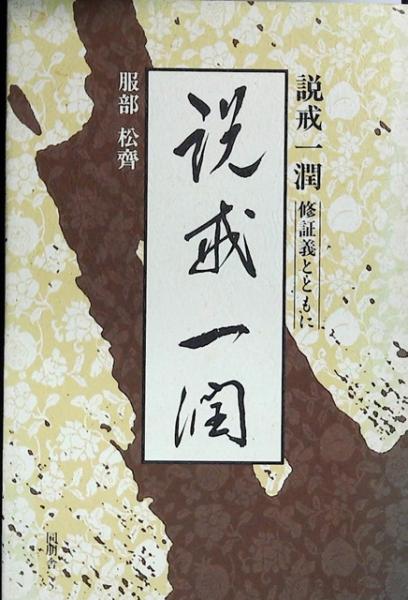 説戒一潤
修証義とともに
説戒一潤
服部 松齊
同朋舎